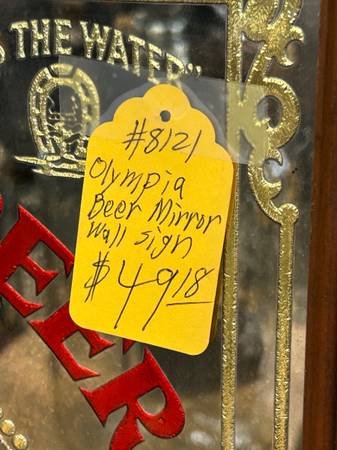 THE WATER"
#8121
Olympia
Beer Mirror
Wall Sign
$49.18
BEER